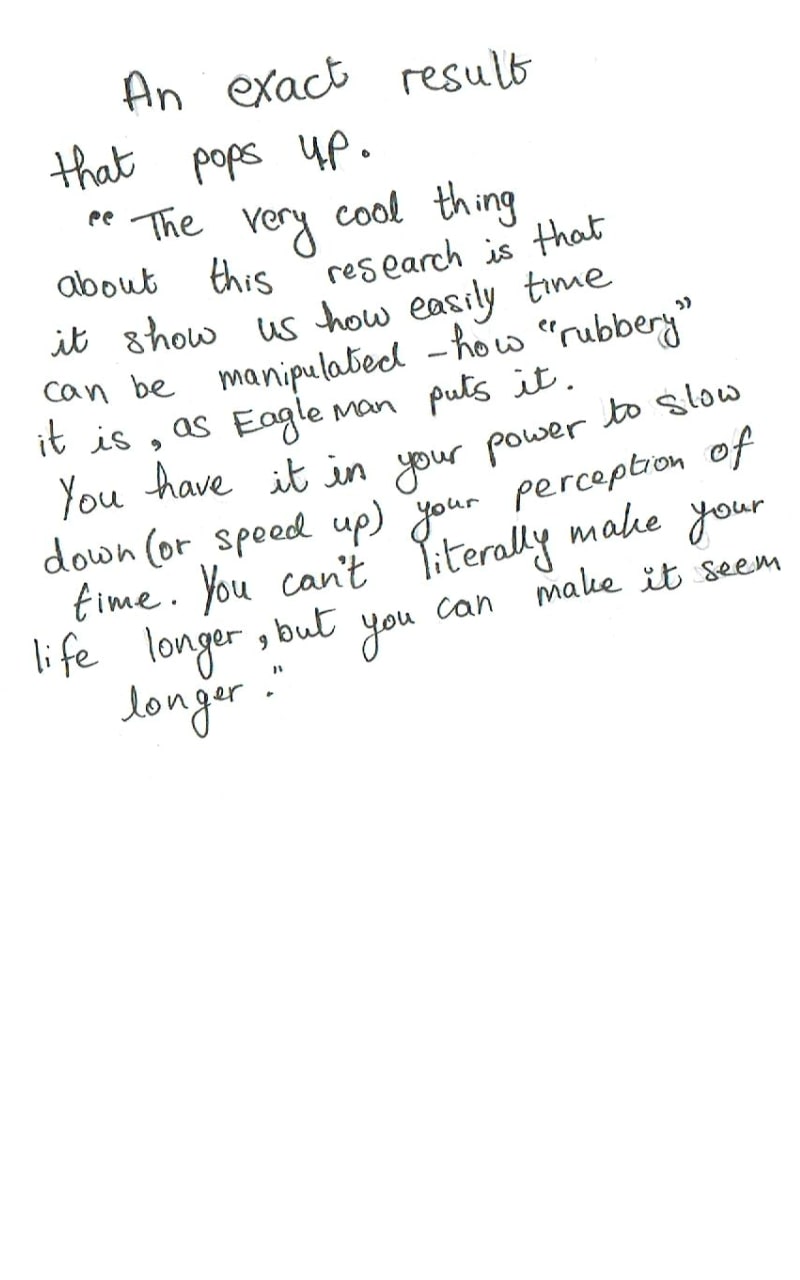 An exact result
that pops up.
"The very cool thing
about this research is that
it show us how easily time
can be manipulated - how "rubbery"
it is, as Eagleman puts it.
You have it in your power to slow
down (or speed up) your perception of
time. You can't literally make your
life longer, but you can make it seem
longer."